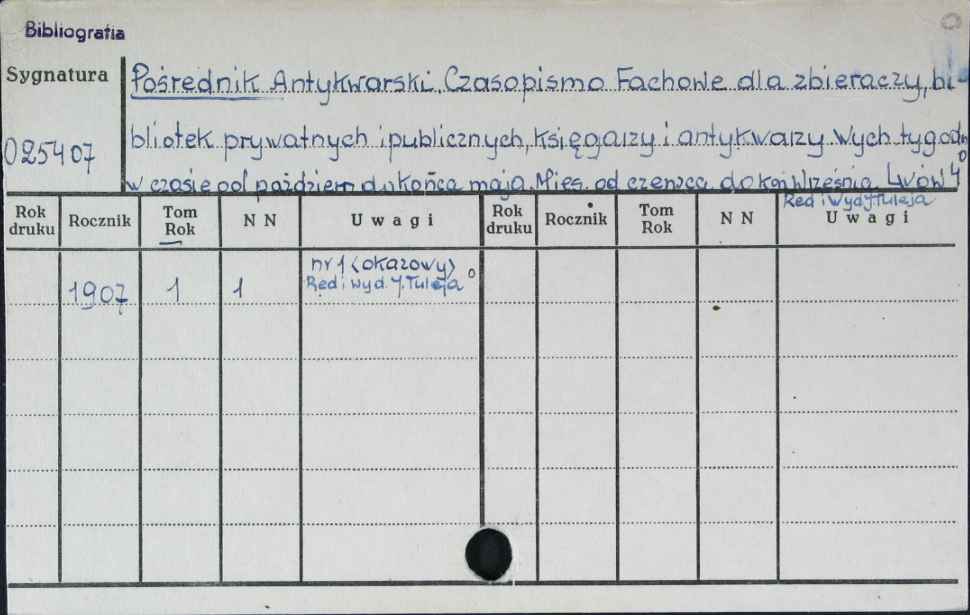 Bibliografia
Sygnatura
025407
Pośrednik Antykwarski. Czasopismo Fachowe dla zbieraczy, bi-
bliotek prywatnych i publicznych, księgarzy i antykwarzy. Wych. tygodn.
w czasie od paździer. do końca maja. Mies. od czerwca do koń. Września. Lwów 4°
Red i Wyd J. Tuleja
Rok druku Rocznik Tom Rok N N Uwagi Rok druku Rocznik Tom Rok N N Uwagi
1907 1 1 nr 1 (okazowy)
Red i wyd. J. Tuleja